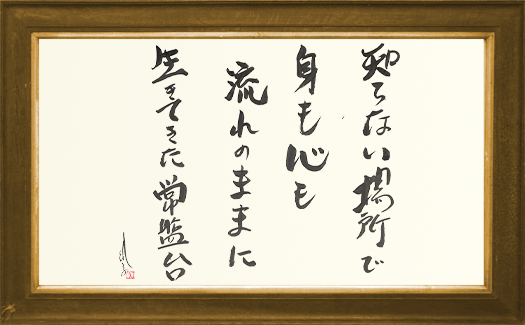 知らない場所で
身も心も
流れのままに
生きてきた常盤台